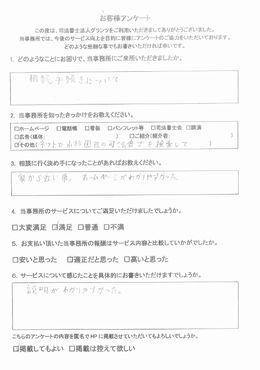 お客様アンケート
この度は、司法書士法人グランツをご利用いただきましてありがとうございました。
当事務所では、今後のサービス向上を目的に皆様にアンケートのご協力をいただいております。
どのような些細な事でもお書きいただければ幸いです。
1. どのようなことにお困りで、当事務所にご来所いただきましたか。
相続手続きについて
2. 当事務所を知ったきっかけをお教えください。
□ホームページ □電話帳 □看板 □パンフレット等 □司法書士会 □講演
□広告(媒体: ) □ご紹介(紹介者: )
☑その他( ネットで 司法書士を検索して )
3. 相談に行く決め手になったことがあればお教えください。
家から近い事。ホームページがわかりやすかった
4. 当事務所のサービスについてご満足いただけましたでしょうか。
□大変満足 ☑満足 □普通 □不満
5. お支払い頂いた当事務所の報酬はサービス内容と比較していかがでしたか。
□安いと思った ☑適正だと思った □高いと思った
6. サービスについて感じたことを具体的にお書きいただけますでしょうか。
説明がわかりやすかった。
こちらのアンケートの内容を匿名でHPに掲載させていただいてもよろしいでしょうか。
☑掲載してもよい □掲載は控えて欲しい